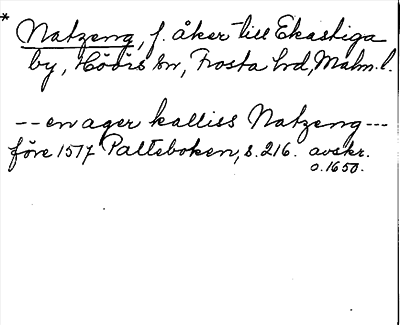 * Natzeng, f. åker till Ekastiga
by, Höörs sn, Frosta hd, Malm. l.
-- en ager kalliss Natzeng ---
före 1517 Palteboken, s. 216. avskr.
o. 1650.